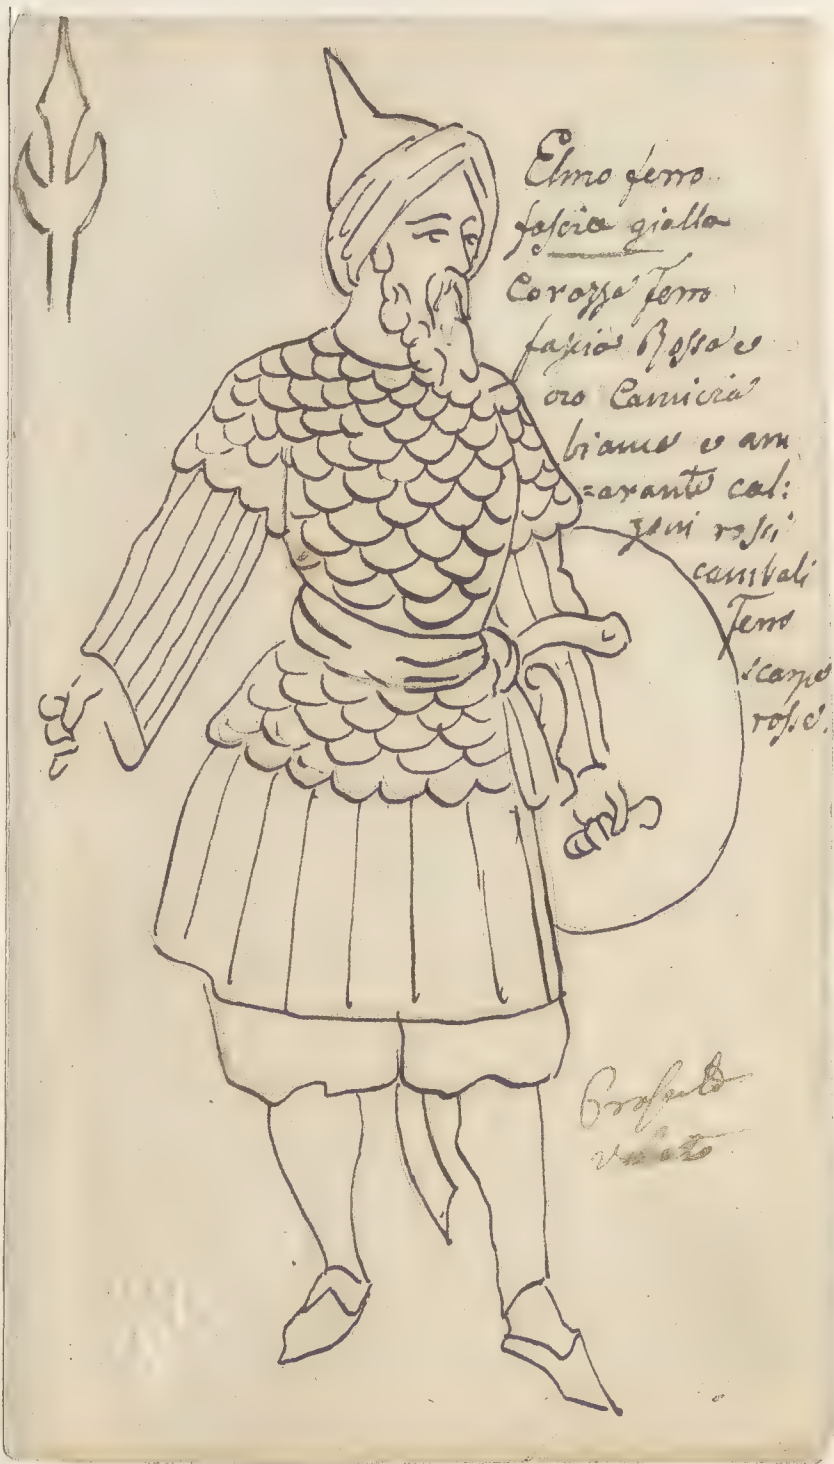 Elmo ferro
fascia gialla
Corazza ferro
fascia Rossa e
oro Camicia
bianca e am
=arante cal:
zoni rossi
cambali
ferro
scarpe
rosse.